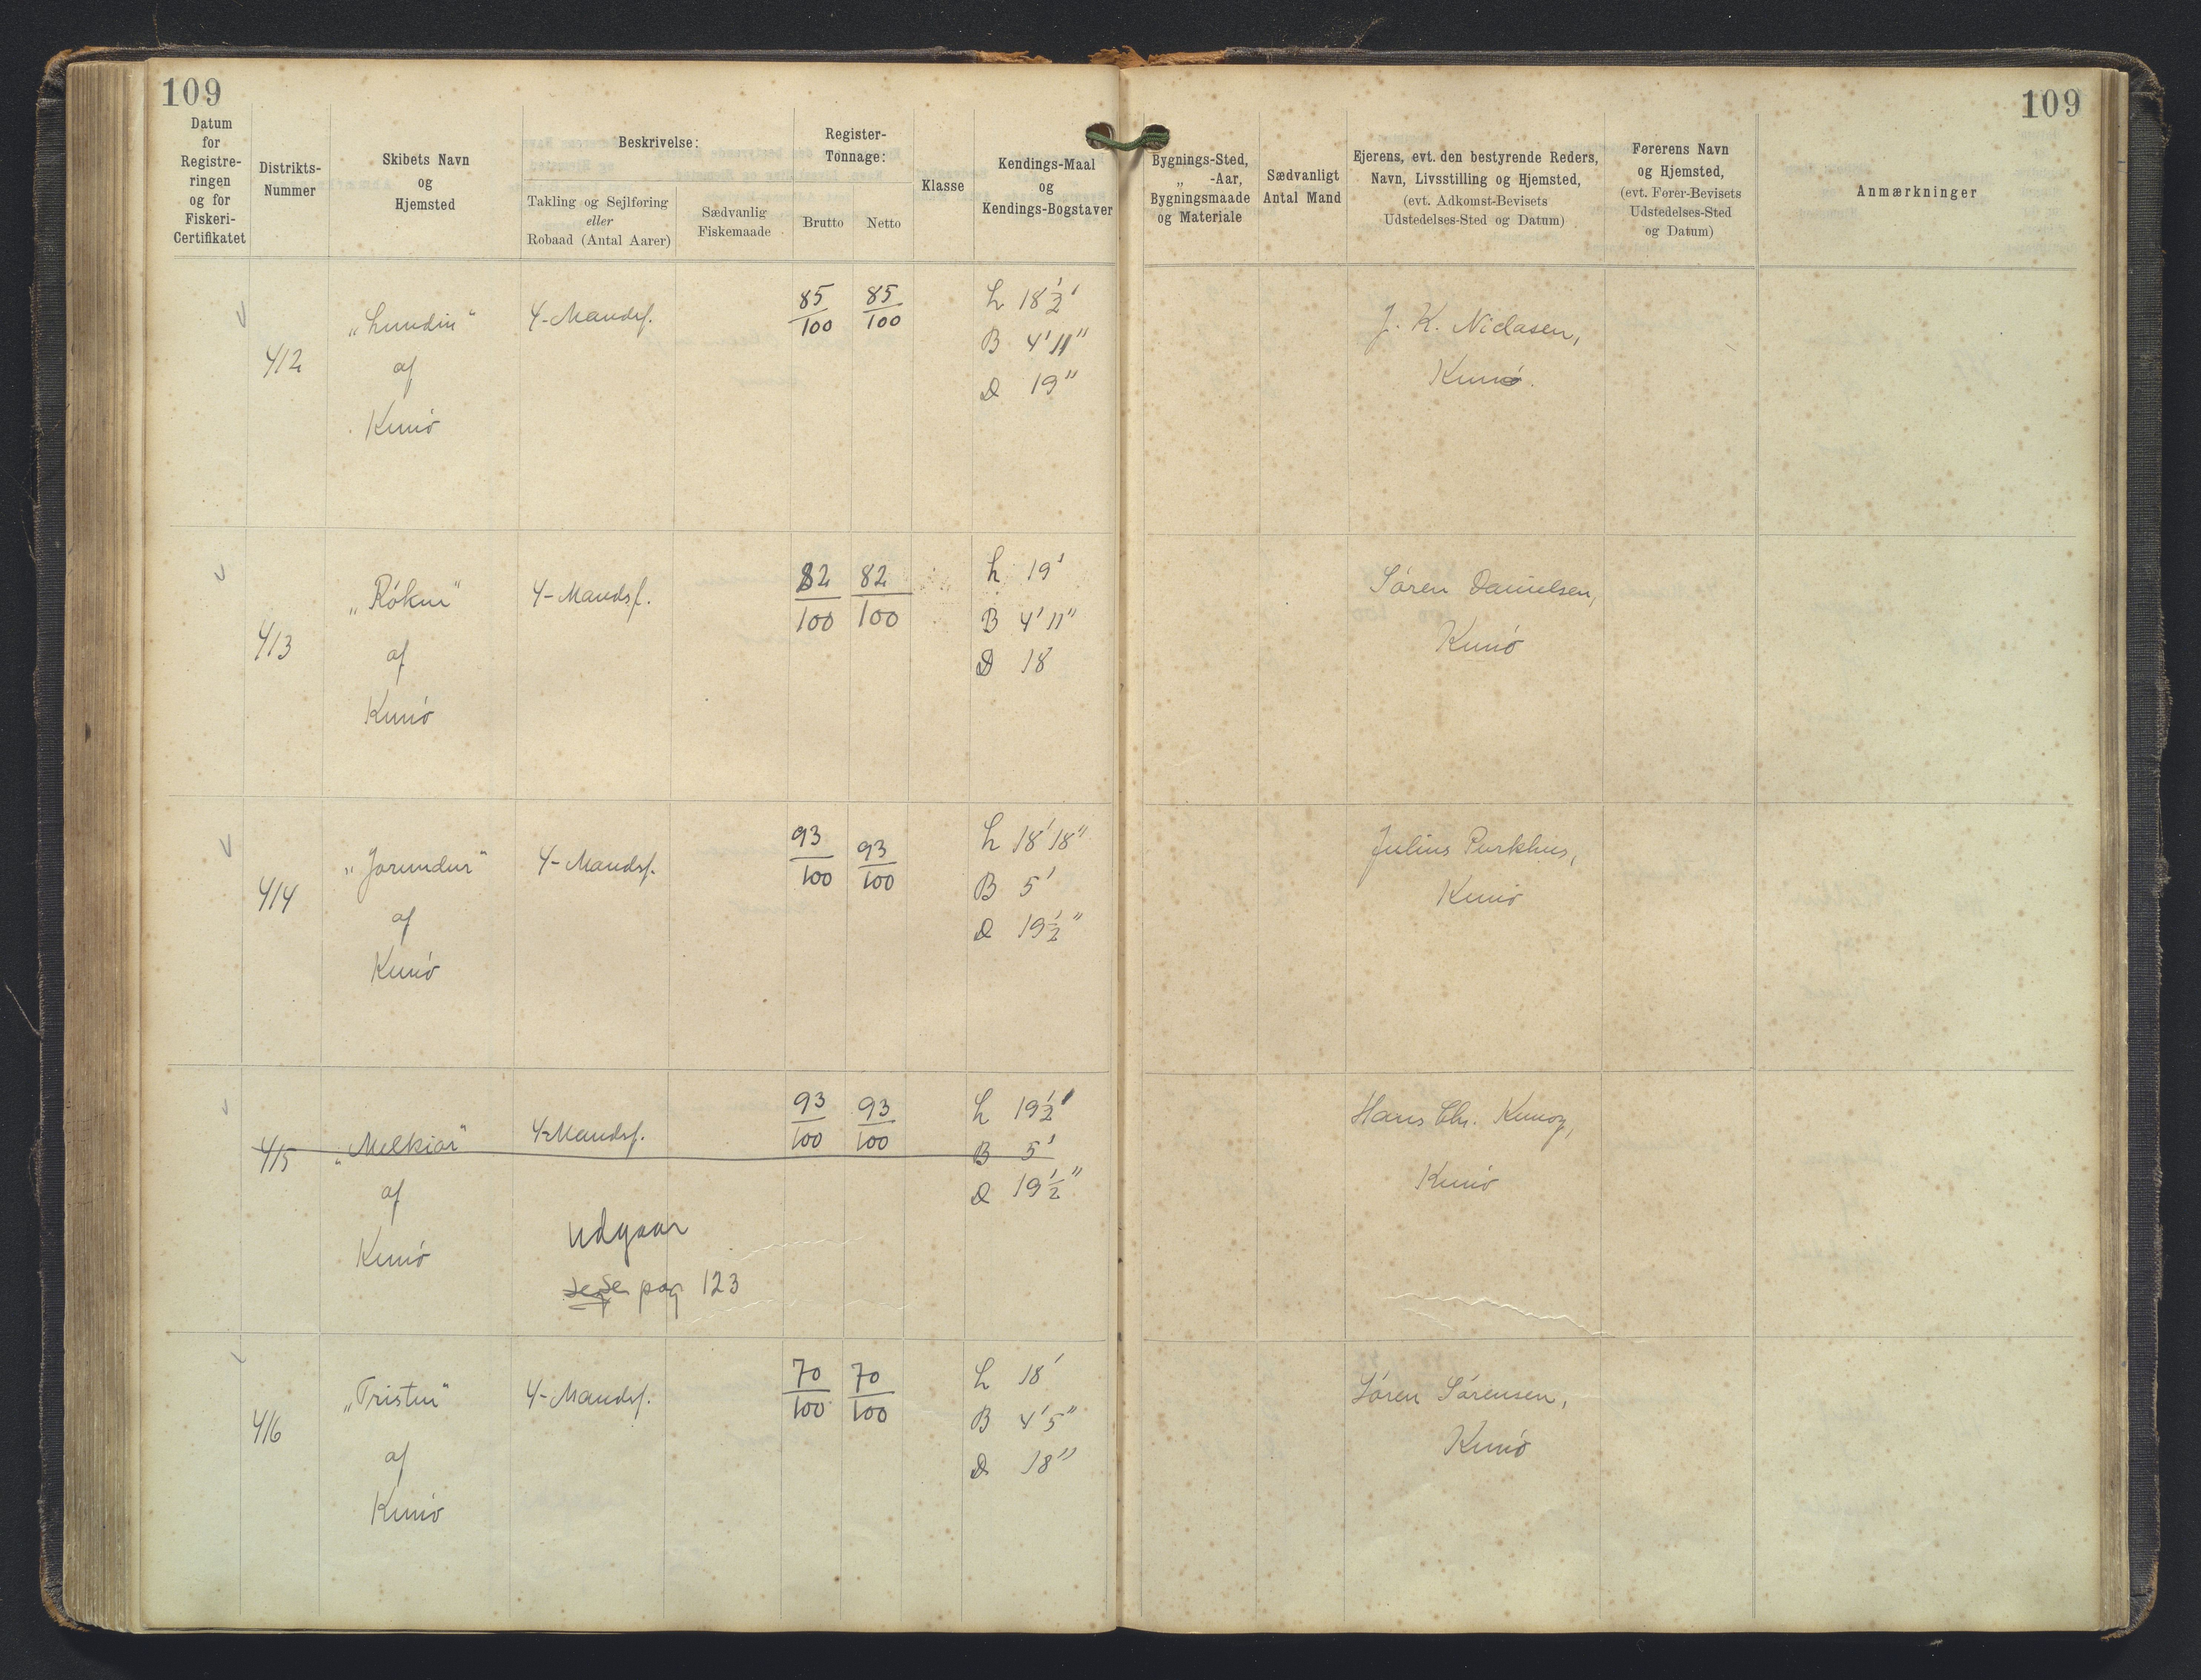 109
109
Datum
for
Registre-
ringen
og for
Fiskeri-
Certifikatet
Distrikts-
Nummer
Skibets Navn
og
Hjemsted
Beskrivelse:
Takling og Sejlføring
eller
Robaad (Antal Aarer)
Sædvanlig
Fiskemaade
Register-
Tonnage:
Brutto
Netto
Klasse
Kendings-Maal
og
Kendings-Bogstaver
Bygnings-Sted,
„ -Aar,
Bygningsmaade
og Materiale
Sædvanligt
Antal Mand
Ejerens, evt. den bestyrende Reders,
Navn, Livsstilling og Hjemsted,
(evt. Adkomst-Bevisets
Udstedelses-Sted og Datum)
Førerens Navn
og Hjemsted,
(evt. Fører-Bevisets
Udstedelses-Sted
og Datum)
Anmærkninger
412
„Lundin"
af
Kunø
4-Mandsf.
85/100
85/100
L 18½'
B 4'11"
D 19"
J. K. Niclasen,
Kunø.
413
„Rókur"
af
Kunø
4-Mandsf.
82/100
82/100
L 19'
B 4'11"
D 18
Søren Danielsen,
Kunø
414
„Jørundur"
af
Kunø
4-Mandsf.
93/100
93/100
L 18'18"
B 5'
D 19½"
Julius Purkhus,
Kunø
415
„Melkiar"
af
Kunø
4-Mandsf.
93/100
93/100
L 19½'
B 5'
D 19½"
Hans Chr. Kunoy,
Kunø
udgaar
pag 123
416
„Tristur"
af
Kunø
4-Mandsf.
70/100
70/100
L 18'
B 4'5"
D 18"
Søren Sørensen,
Kunø